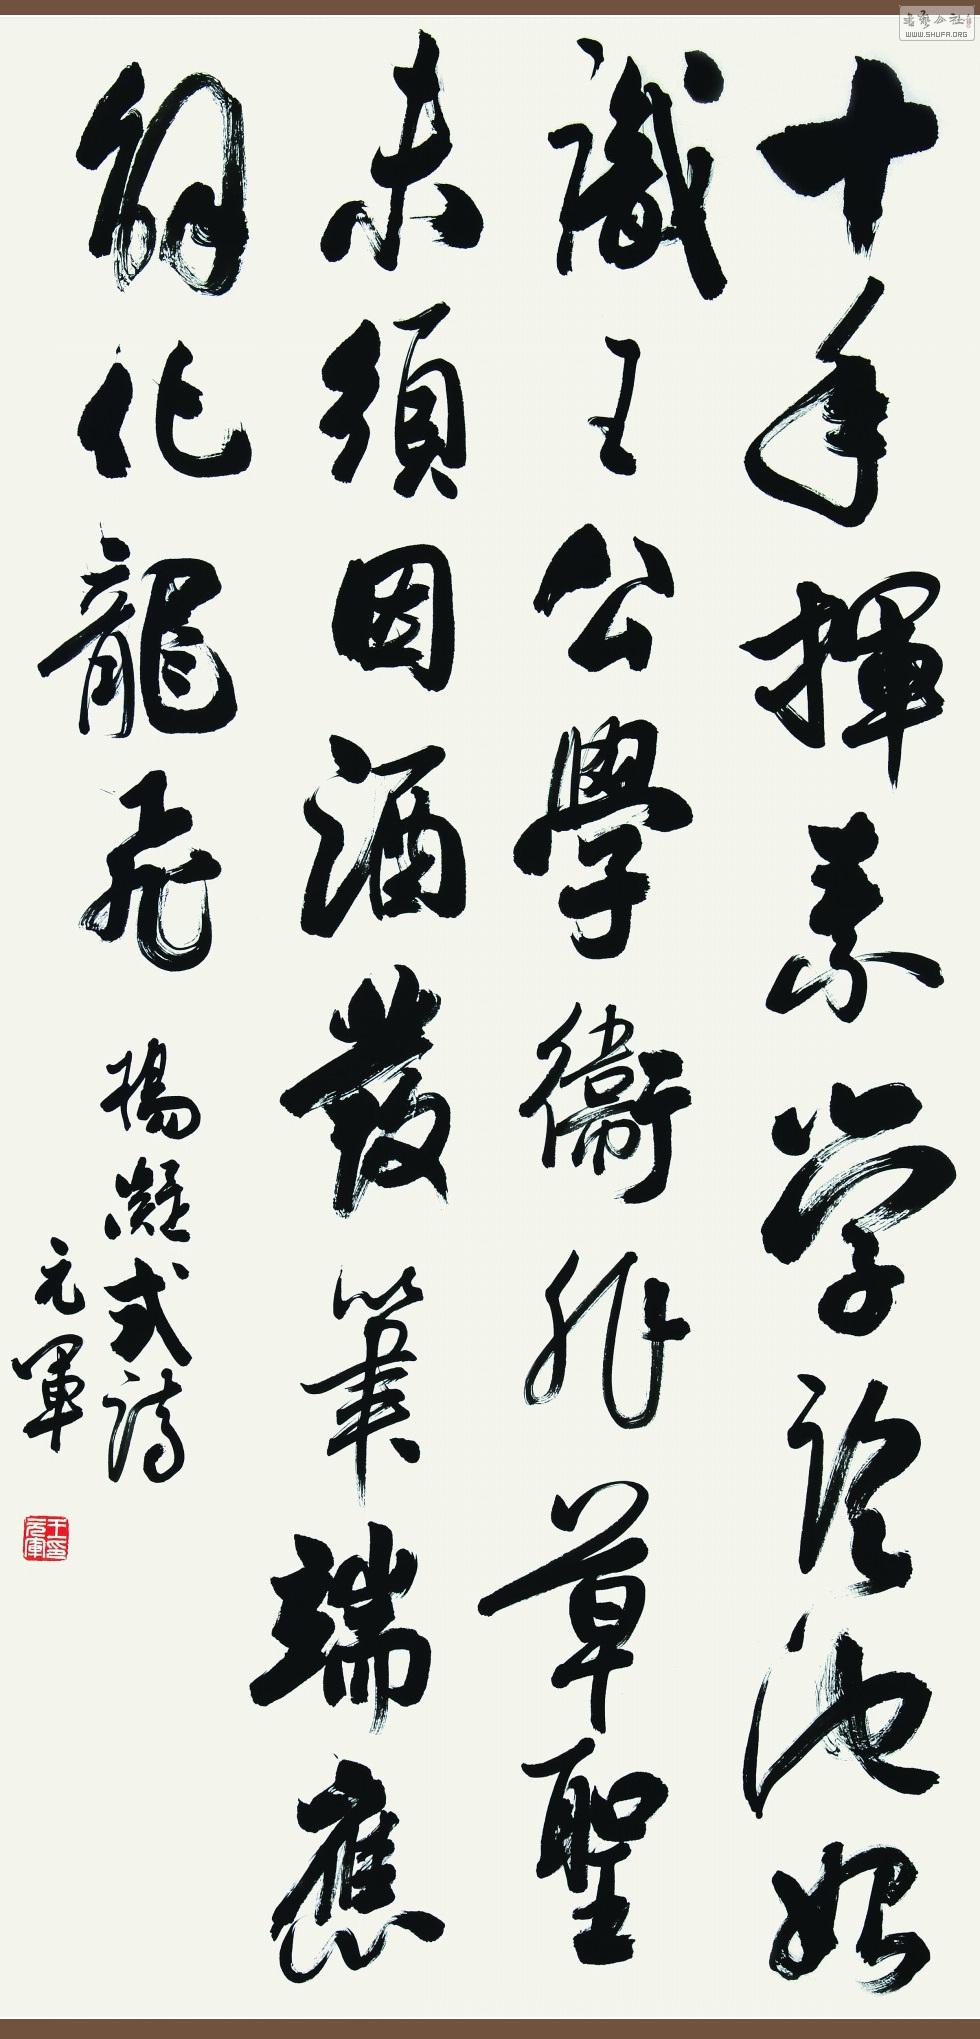 十年揮素学臨池始
識王公學衛非草聖
未須因酒發筆端應
解化龍飛 楊凝式詩
元軍
王印元軍
書藝公社
WWW.SHUFA.ORG